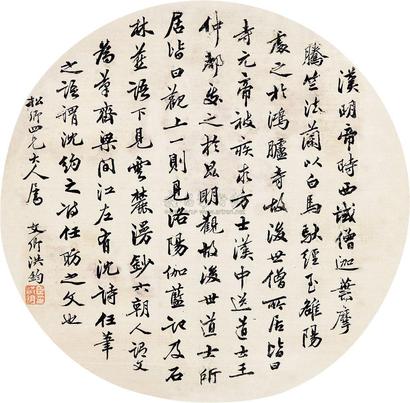 漢明帝時西域僧迦葉摩
騰竺法蘭以白馬馱經至雒陽
處之於鴻臚寺故後世僧所居皆曰
寺元帝被疾求方士漢中送道士王
仲都處之於昆明觀故後世道士所
居皆曰觀上一則見洛陽伽藍記及石
林燕語下見雲麓漫鈔六朝人謂文
為筆齊梁間江左有沈詩任筆
之語謂沈約之詩任昉之文也
松四兄大人屬 文卿洪鈞